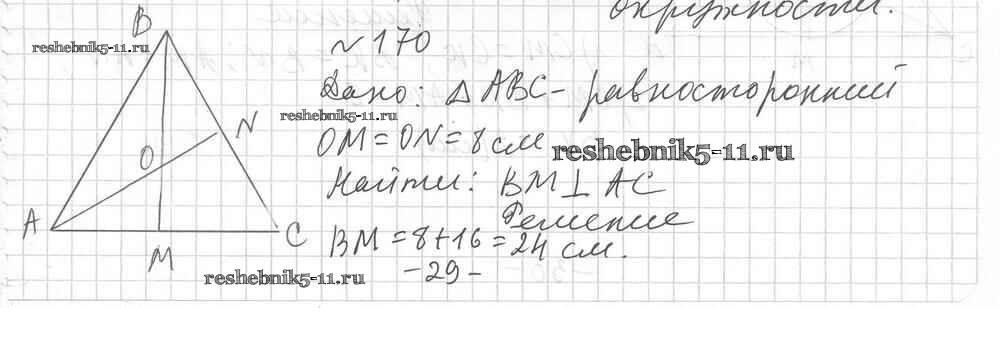 окружности.
B
reshebnik5-11.ru
N 170
Дано: △ ABC - равносторонний
reshebnik5-11.ru
N
OM = ON = 8 см
reshebnik5-11.ru
O
Найти: BM ⊥ AC
Решение
A
C
BM = 8 + 16 = 24 см.
M
reshebnik5-11.ru
- 29 -